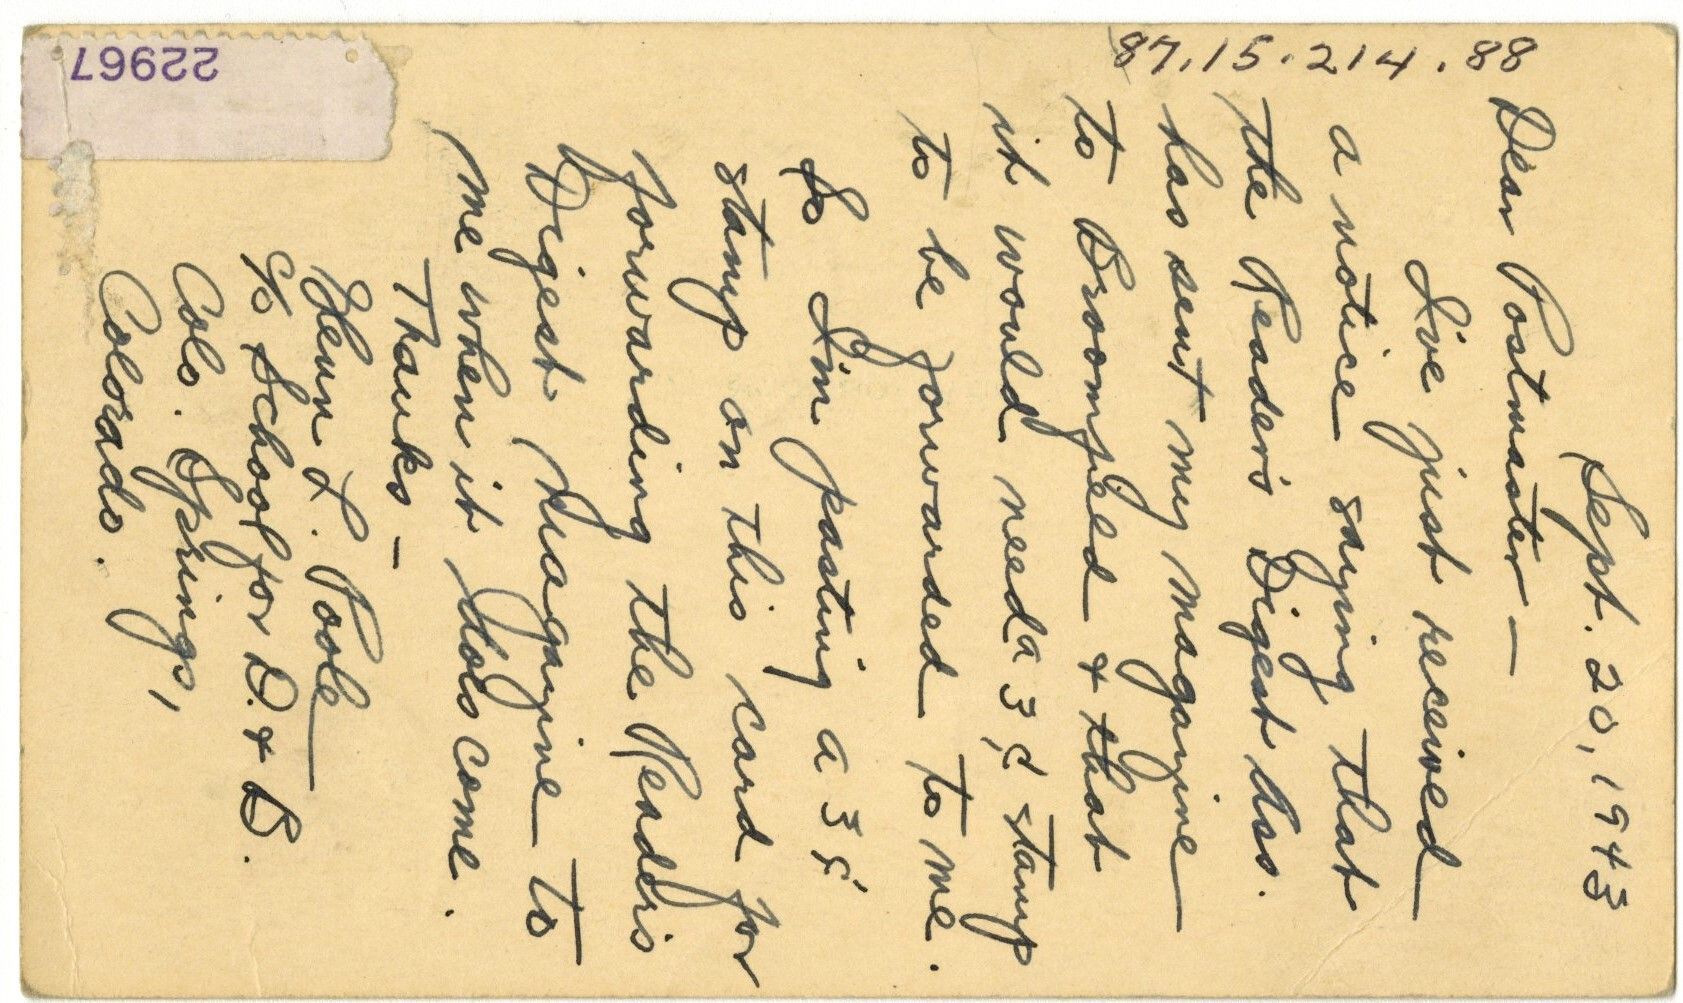 87.15.214.88
22967
Sept. 20, 1943
Dear Postmaster —
I've just received
a notice saying that
the Reader's Digest Ass.
has sent my magazine
to Broomfield + that
it would need a 3¢ stamp
to be forwarded to me.
So I'm pasting a 3¢
stamp on this card for
forwarding the Readers
Digest Magazine to
me when it does come.
Thanks —
Glenn L. Poole
c/o School for D. + B.
Colo. Springs,
Colorado.